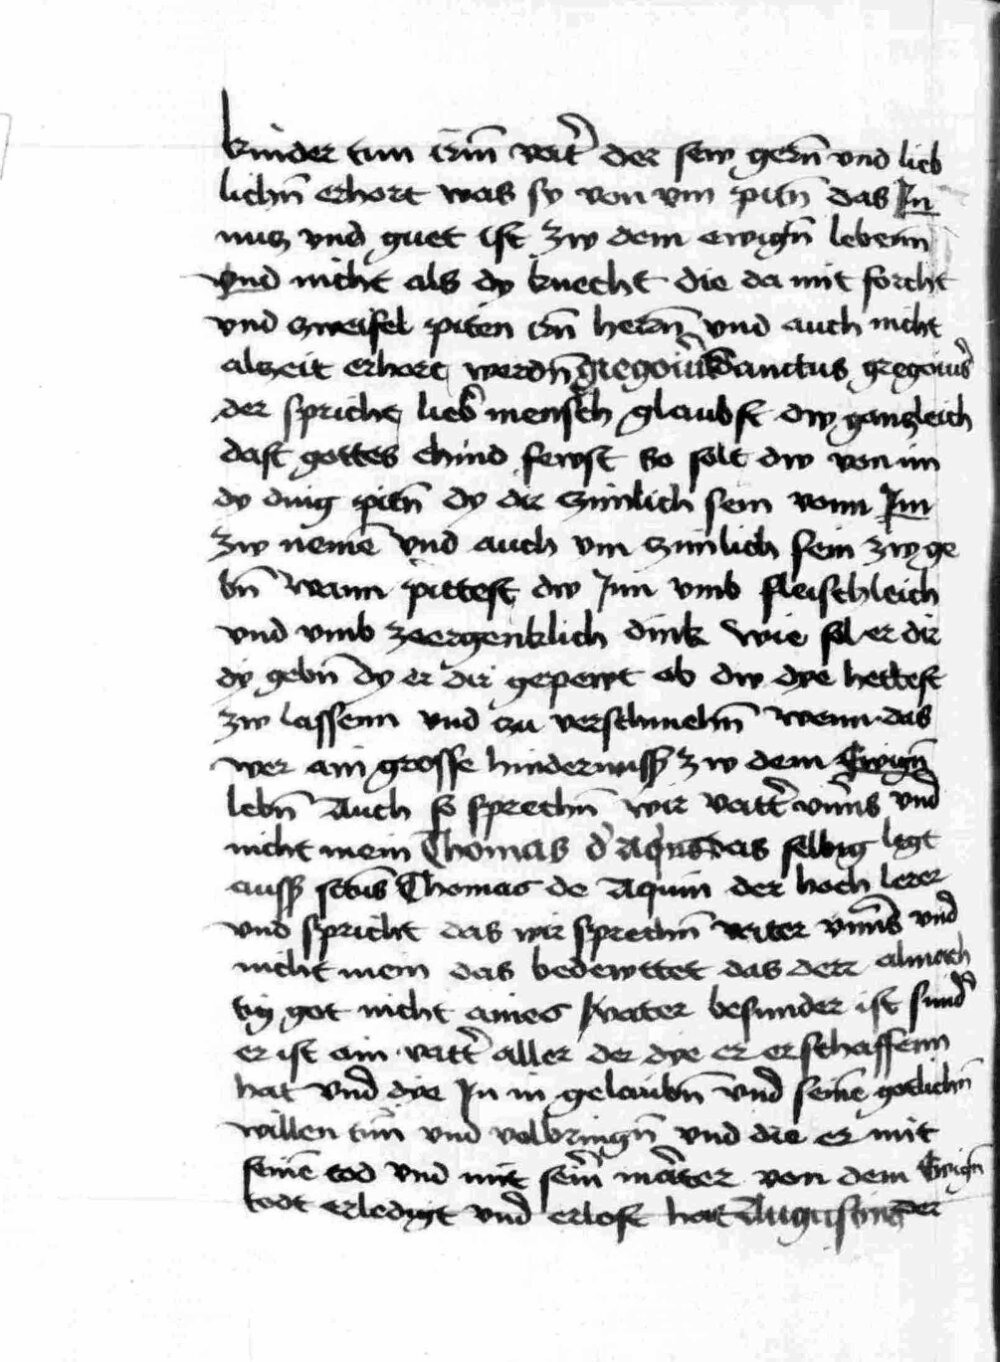 kinder tun irm̄ vatˀ der sew gern̄ vnd lieb
lichn̄ erhort was sy von ym pitn̄ das In
nucz vnd guet ist zw dem ewign̄ lebenn̄
vnd nicht als dy knecht die da mit forcht
vnd zweifel piten irn̄ hern̄ vnd auch nicht
alzeit erhort werdn̄ gregoriˀ Sanctus gregoriˀ
der spricht lieb mensch glaubst dw ganczleich
dast gottes chind sewst so solt dw von im
dy ding pitn̄ dy dir zimlich sein vonn Im
zw nemē vnd auch ym zimlich sein zw ge
bn̄ Wann pittest dw Inn vmb fleischleich
vnd vmb zeergenklich dink Wie sol er dir
dy gebn̄ dy er dir gepewt ob dw dye hettest
zw lassenn vnd zu verschmehn̄ Wenn das
wer ain grosse hindernuss zw dem Ewign̄
lebn̄ Auch so sprechn̄ wir vattˀ vnˀs vnd
nicht mein Thomas dˀ Aqˀ das selbig legt
auss sctus Thomas de Aquin der hoch lerer
vnd spricht das wir sprechn̄ vater vnˀs vnd
nicht mein das bedewttet das derr almech
tig got nicht aines vater besunder ist sundˀ
er ist ain vattˀ aller der dye er erschaffenn
hat vnd dye In in gelaubn̄ vnd seinē gotlichn̄
willen tun̄ vnd volbringn̄ vnd die er mit
seinē tod vnd mit seinˀ mater von dem Ewign̄
todt erledigt vnd erlost hat Augustinˀ der